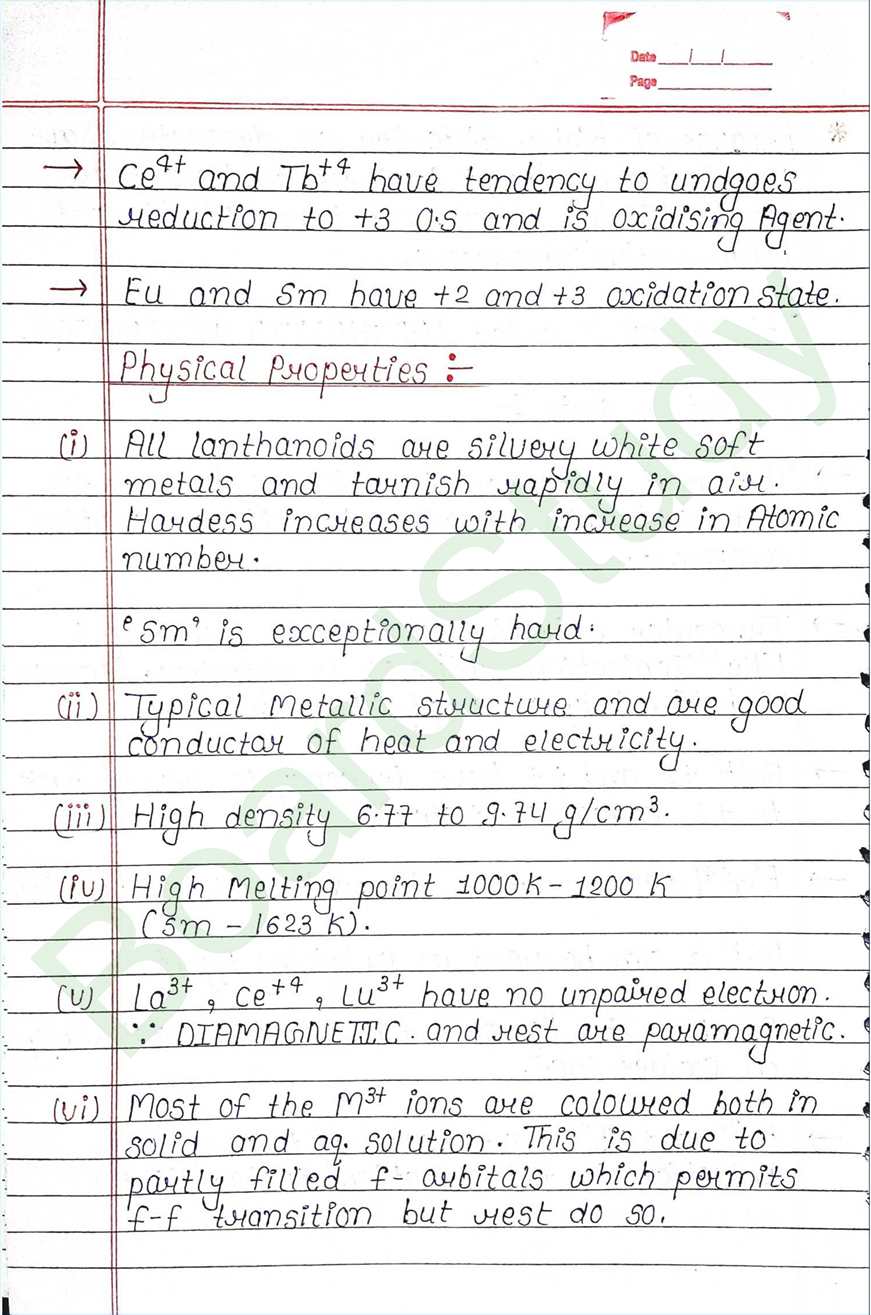 Date __/__/__
Page
→ Ce⁴⁺ and Tb⁺⁴ have tendency to undgoes
reduction to +3 O.S and is oxidising Agent.
→ Eu and Sm have +2 and +3 oxidation state.
Physical Properties :-
(i) All lanthanoids are silvery white soft
metals and tarnish rapidly in air.
Hardess increases with increase in Atomic
number.
'Sm' is exceptionally hard.
(ii) Typical Metallic structure and are good
conductor of heat and electricity.
(iii) High density 6.77 to 9.74 g/cm³.
(iv) High Melting point 1000K - 1200 K
(Sm - 1623 K).
(v) La³⁺, Ce⁺⁴, Lu³⁺ have no unpaired electron.
∵ DIAMAGNETIC. and rest are paramagnetic.
(vi) Most of the M³⁺ ions are coloured both in
solid and aq. solution. This is due to
partly filled f- orbitals which permits
f-f transition but rest do so.
BoardStudy